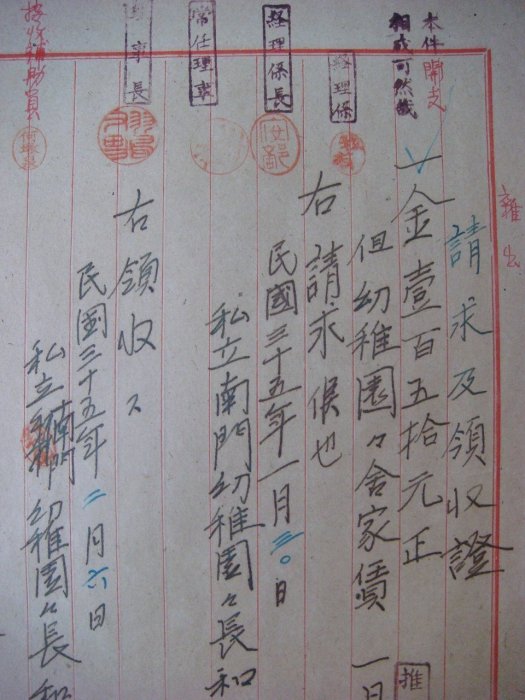 雜出
本件開支
相成可然哉
請求及領收證
一金壹百五拾元正
但幼稚園々舍家賃 一月
經理係
右請求候也
經理係長
民國三十五年一月三〇日
常任理事
私立南門幼稚園々長 和
理事長
右領收ス
民國三十五年二月六日
接收補助員
私立南門幼稚園々長 和
推